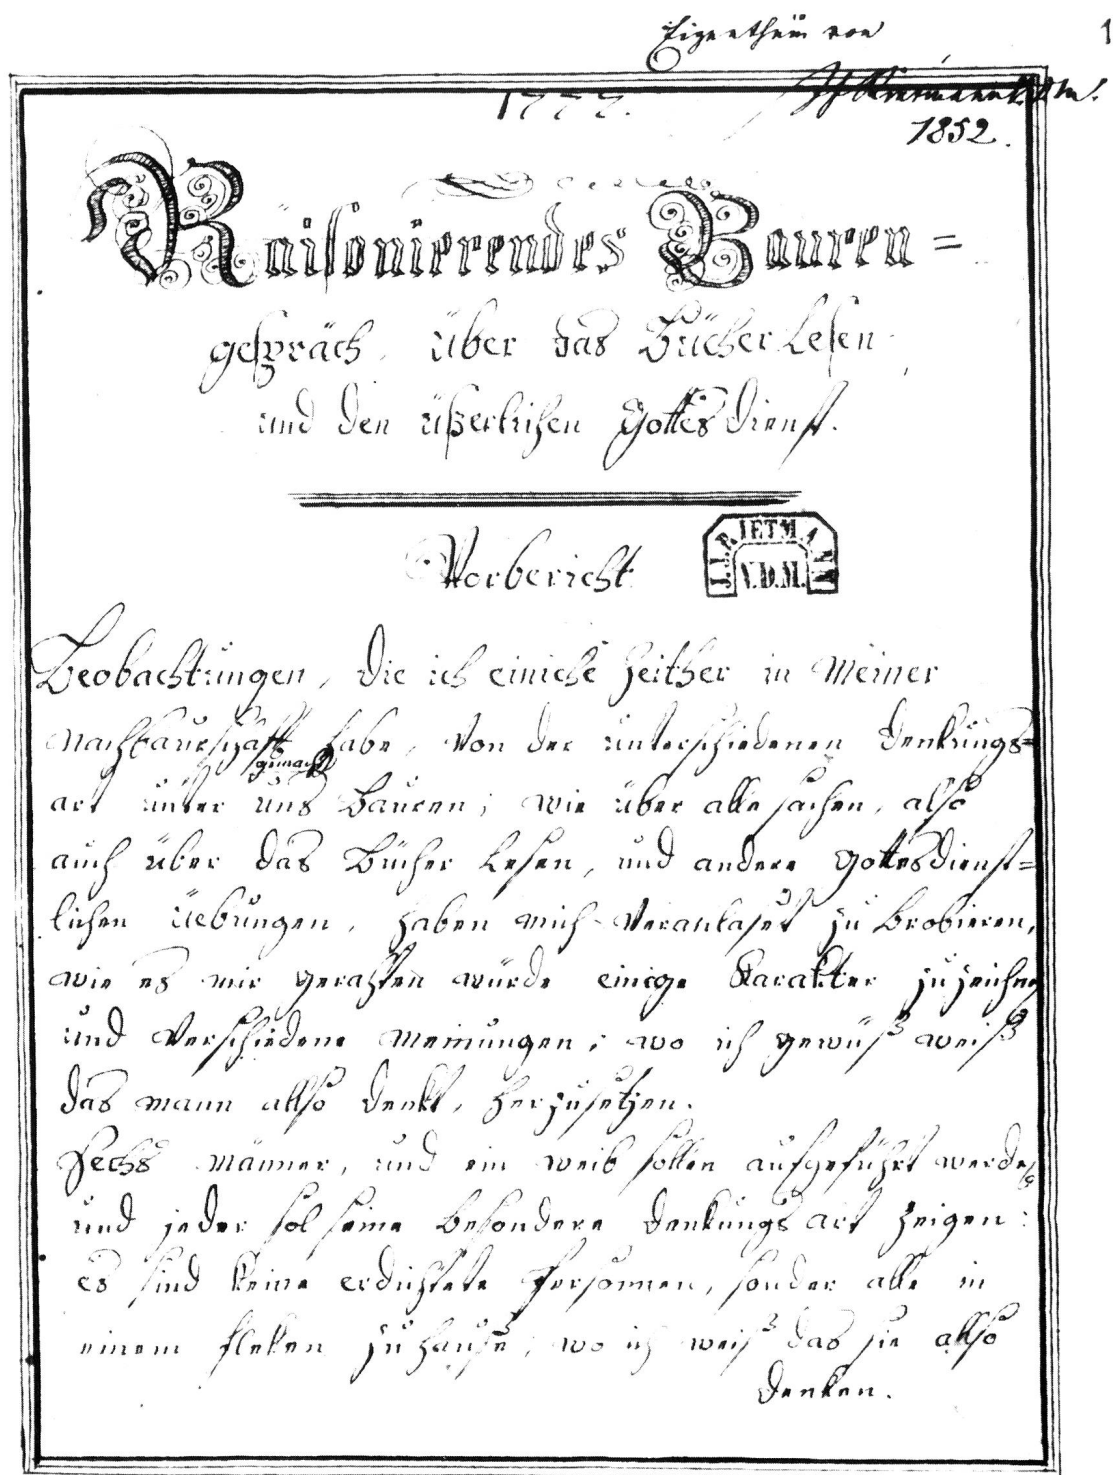 Eigenthum von
1
J J Rietmann V.D.M.
1852.
1777.
Raisonierendes Bauren=
gespräch über das Bücher Lesen
und den üßerlichen Gottes Dienst.
Vorbericht
J. J. RIETMANN
V.D.M.
Beobachtungen, die ich eniche Zeither in meiner
Nachbaurschafft habe, von der unterschiedenen denkungs=
gemacht
art unter uns Bauren; wie über alle sachen, also
auch über das Bücher Lesen, und andere gottesdienst=
lichen Üebungen, haben mich veranlaset zu Brobieren,
wie es mir gerahten würde einige Karakter zu zeichnen
und verschiedene meinungen; wo ich gewüß weiß
das mann allso denkt, herzusetzen.
Sechs männer, und ein weib sollen aufgeführt werden
und jeder sol seine besondere denkungs art zeigen:
es sind keine erdichtete Persohnen, sonder alle in
einem fleken zu hause, wo ich weiß das sie allso
denken.